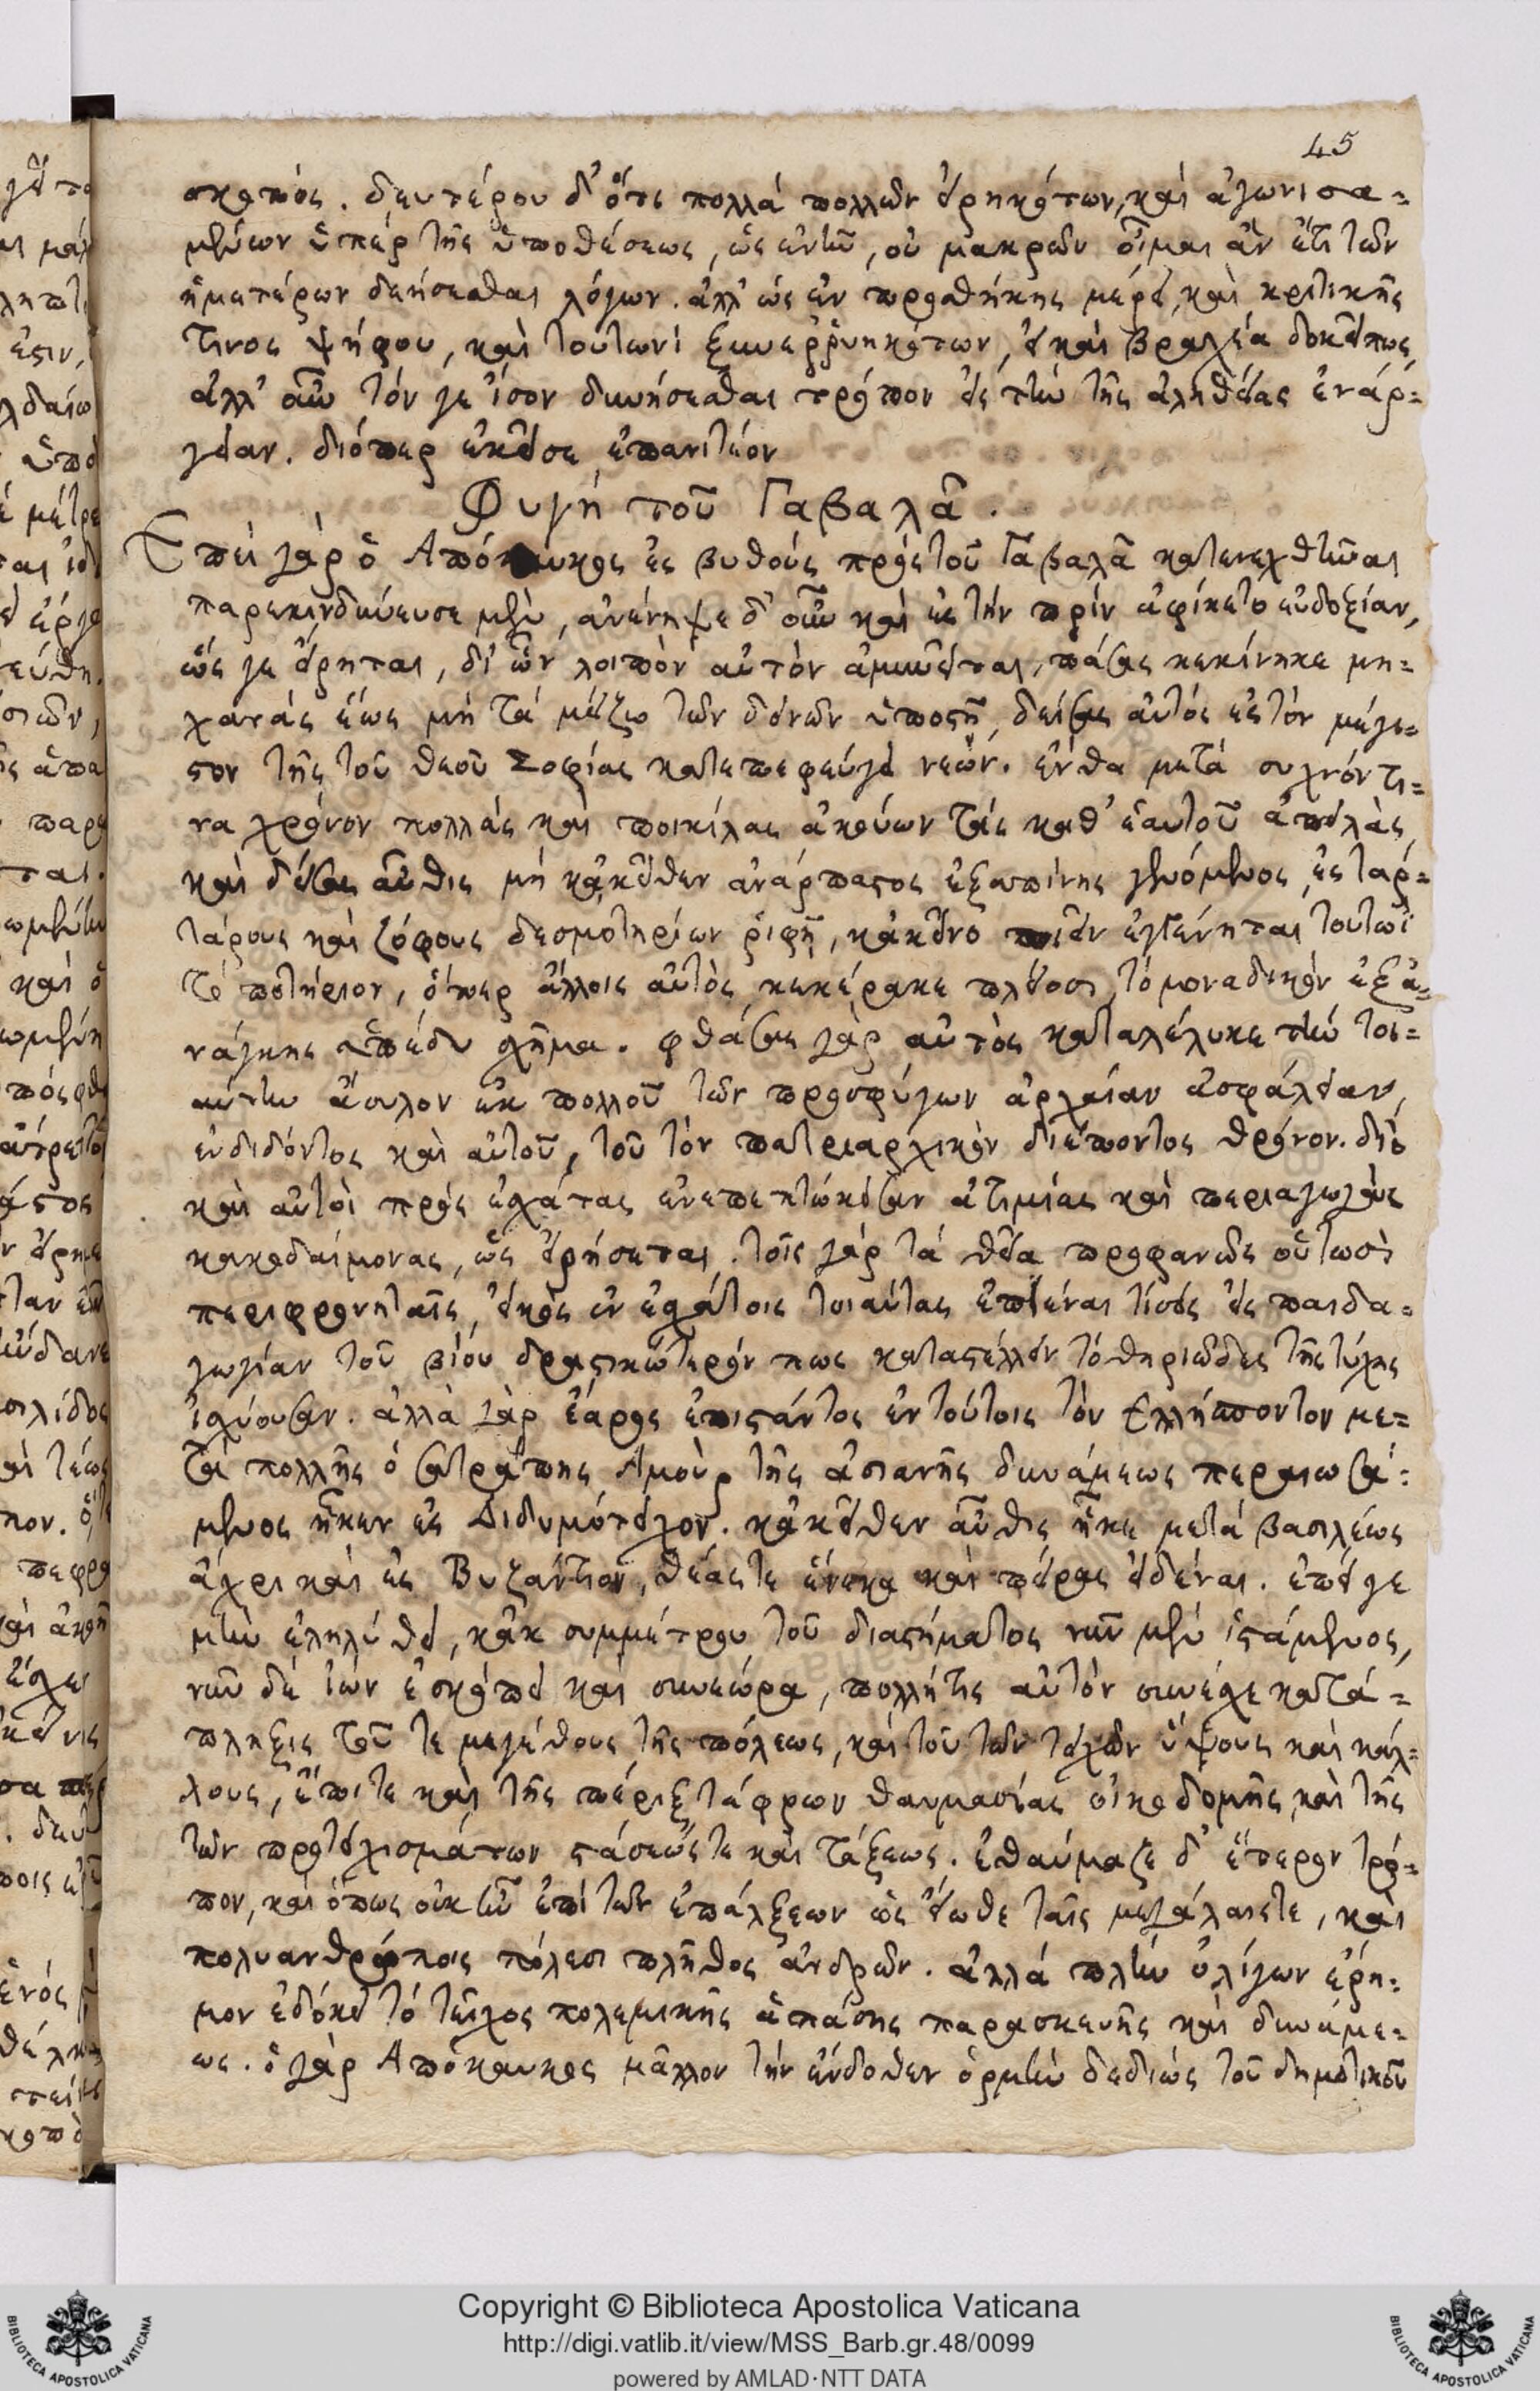 45
σκοπός. δευτέρου δ' ὅτε πολλά πολλῶν εἰρηκότων, καὶ ἀγωνισα=
μένων ὑπέρ τῆς ὑποθέσεως, ὡς ἐνῆν, οὐ μακρῶν οἶμαι ἂν ἔτι τῶν
ἡμετέρων δεήσεσθαι λόγων. ἀλλ' ὡς ἐν προσθήκης μέρει, καὶ κριτικῆς
τινος ψήφου, καὶ τουτωνὶ ξυνερρυηκότων, εἰ καὶ βραχέα δοκεῖ πως,
ἀλλ' οὖν τόν γε ἴσον δυνήσεσθαι τρόπον εἰς τὴν τῆς ἀληθείας ἐνάρ=
γειαν. διόπερ ἐκεῖσε ἐπανιτέον
Φυγή τοῦ Γαβαλᾶ.
Ἐπεὶ γὰρ ὁ Ἀπόκαυκος ἐς βυθούς πρός τοῦ Γαβαλᾶ κατενεχθῆναι
παρεκινδύνευσε μέν, ἀνένηψε δ' οὖν καὶ ἐς τήν πρίν ἀφίκετο εὐδοξίαν,
ὥς γε εἴρηται, δι' ὧν λοιπὸν αὐτὸν ἀμυνεῖται, πάσας κεκίνηκε μη=
χανάς ἕως μή τά μείζω τῶν δεινῶν ὑποστῇ, δείσας αὐτός ἐς τόν μέγι=
στον τῆς τοῦ θεοῦ Σοφίας κατεπεφεύγει νεών. ἔνθα μετά συχνόν τι=
να χρόνον πολλάς καὶ ποικίλας ἀκούων τάς καθ' ἑαυτοῦ ἀπειλάς,
καὶ δείσας αὖθις μή κἀκεῖθεν ἀνάρπαστος ἐξαπίνης γενόμενος, ἐς ταρ=
τάρους καὶ ζόφους δεσμοτηρίων ῥιφῇ, κἀκεῖνο πιεῖν ἐγγένηται τουτωΐ
τό ποτήριον, ὅπερ ἄλλοις αὐτὸς κεκέρακε πλείοσι, τό μοναδικόν ἐξ ἀ=
νάγκης ὑπέδυ σχῆμα. φθάσας γὰρ αὐτὸς καταλέλυκε τήν τοι=
αύτην ἄσυλον ἐκ πολλοῦ τῶν προσφύγων ἀρχαίαν ἀσφάλειαν,
ἐνδιδόντος καὶ αὐτοῦ, τοῦ τὸν πατριαρχικόν διέποντος θρόνον. διὸ
καὶ αὐτοὶ πρός ἐσχάτας ἐνεπεπτώκεισαν ἀτιμίας καὶ περιαγωγὰς
κακοδαίμονας, ὡς εἰρήσεται. τοῖς γὰρ τά θεῖα προφανῶς οὑτωσὶ
περιφρονηταῖς, εἰκός ἐν ἐσχάτοις τοιαύτας ἐπιέναι τίσεις εἰς παιδα=
γωγίαν τοῦ βίου δραστικώτερόν πως καταστέλλειν τό θηριῶδες τῆς τύχης
ἰσχύουσαν. ἀλλὰ γὰρ ἔαρος ἐπιστάντος ἐν τούτοις τὸν Ἑλλήσποντον με=
τά πολλῆς ὁ σατράπης Ἀμούρ τῆς ἀσιανῆς δυνάμεως περαιωσά=
μενος ἧκεν ἐς Διδυμότειχον. κἀκεῖθεν αὖθις ἧκε μετά βασιλέως
ἄχρι καὶ ἐς Βυζάντιον, θέας τε ἕνεκα καὶ πείρας εἰδέναι. ἐπεί γε
μήν ἐληλύθει, κἀκ συμμέτρου τοῦ διαστήματος νῦν μέν ἱστάμενος,
νῦν δὲ ἰών ἐσκόπει καὶ συνεώρα, πολλή τις αὐτόν συνέσχε κατά=
πληξις τοῦ τε μεγέθους τῆς πόλεως, καὶ τοῦ τῶν τειχῶν ὕψους καὶ κάλ=
λους, ἔτι τε καὶ τῆς πέριξ τάφρων θαυμασίας οἰκοδομῆς, καὶ τῆς
τῶν προτειχισμάτων στάσεώς τε καὶ τάξεως. ἐθαύμαζε δ' ἕτερον τρό=
πον, καὶ ὅπως οὐκ ἦν ἐπὶ τῶν ἐπάλξεων ὡς εἴωθε ταῖς μεγάλαις τε, καὶ
πολυανθρώποις πόλεσι πλῆθος ἀνδρῶν. ἀλλά πλήν ὀλίγων ἔρη=
μον ἐδόκει τό τεῖχος πολεμικῆς ἁπάσης παρασκευῆς καὶ δυνάμε=
ως. ὁ γὰρ Ἀπόκαυκος μᾶλλον τήν ἔνδοθεν ὁρμήν δεδιώς τοῦ δημοτικοῦ
Copyright © Biblioteca Apostolica Vaticana
http://digi.vatlib.it/view/MSS_Barb.gr.48/0099
powered by AMLAD·NTT DATA
BIBLIOTECA APOSTOLICA VATICANA
BIBLIOTECA APOSTOLICA VATICANA